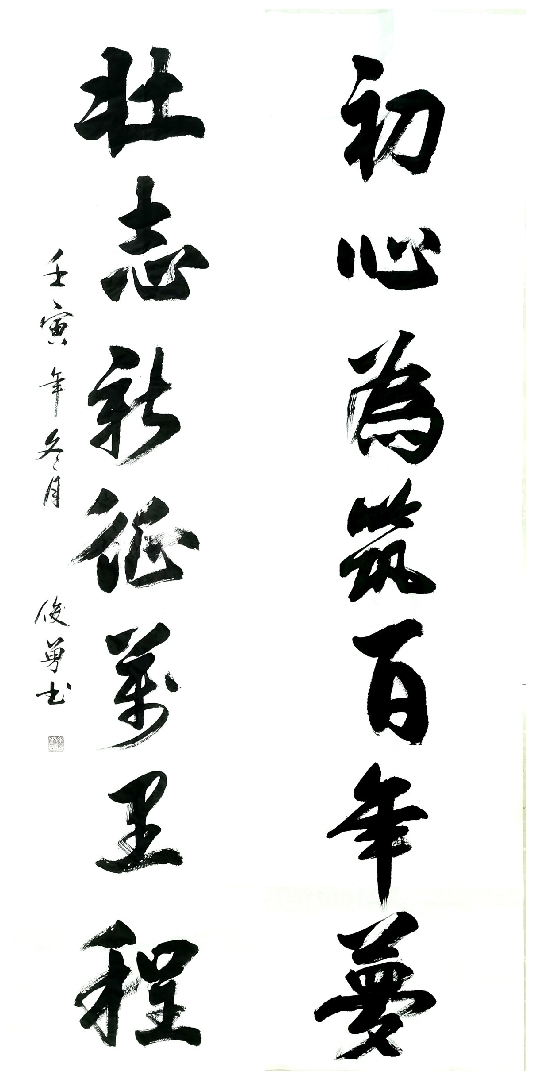 初心為筑百年夢
壯志新征萬里程
壬寅年冬月
俊勇书